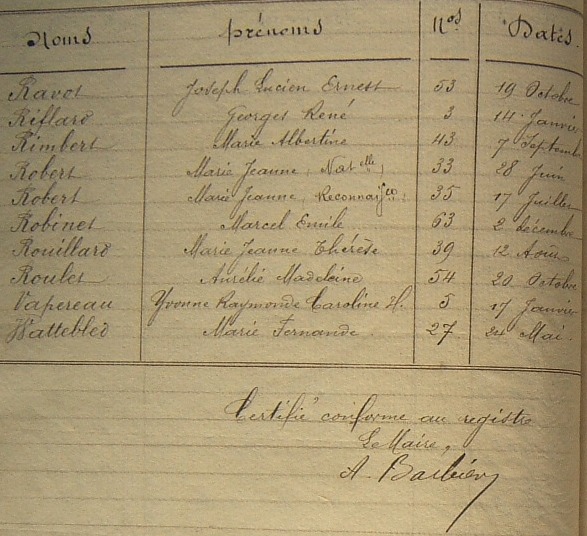 Noms Prénoms Nos Dates
Ravot Joseph Lucien Ernest 53 19 Octobre
Riflard Georges René 3 14 Janvie
Rimbert Marie Albertine 43 7 Septemb
Robert Marie Jeanne, Nat elle, 33 28 Juin
Robert Marie Jeanne, Reconnaisce. 35 17 Juillet
Robinet Marcel Emile 63 2 décembre
Rouillard Marie Jeanne Thérèse 39 12 Août
Roulet Aurélie Madeleine 54 20 Octobre
Vapereau Yvonne Raymonde Caroline H. 5 17 Janvier
Wattebled Marie Fernande. 27 24 Mai.
Certifié conforme au registre
Le Maire,
A. Barbier